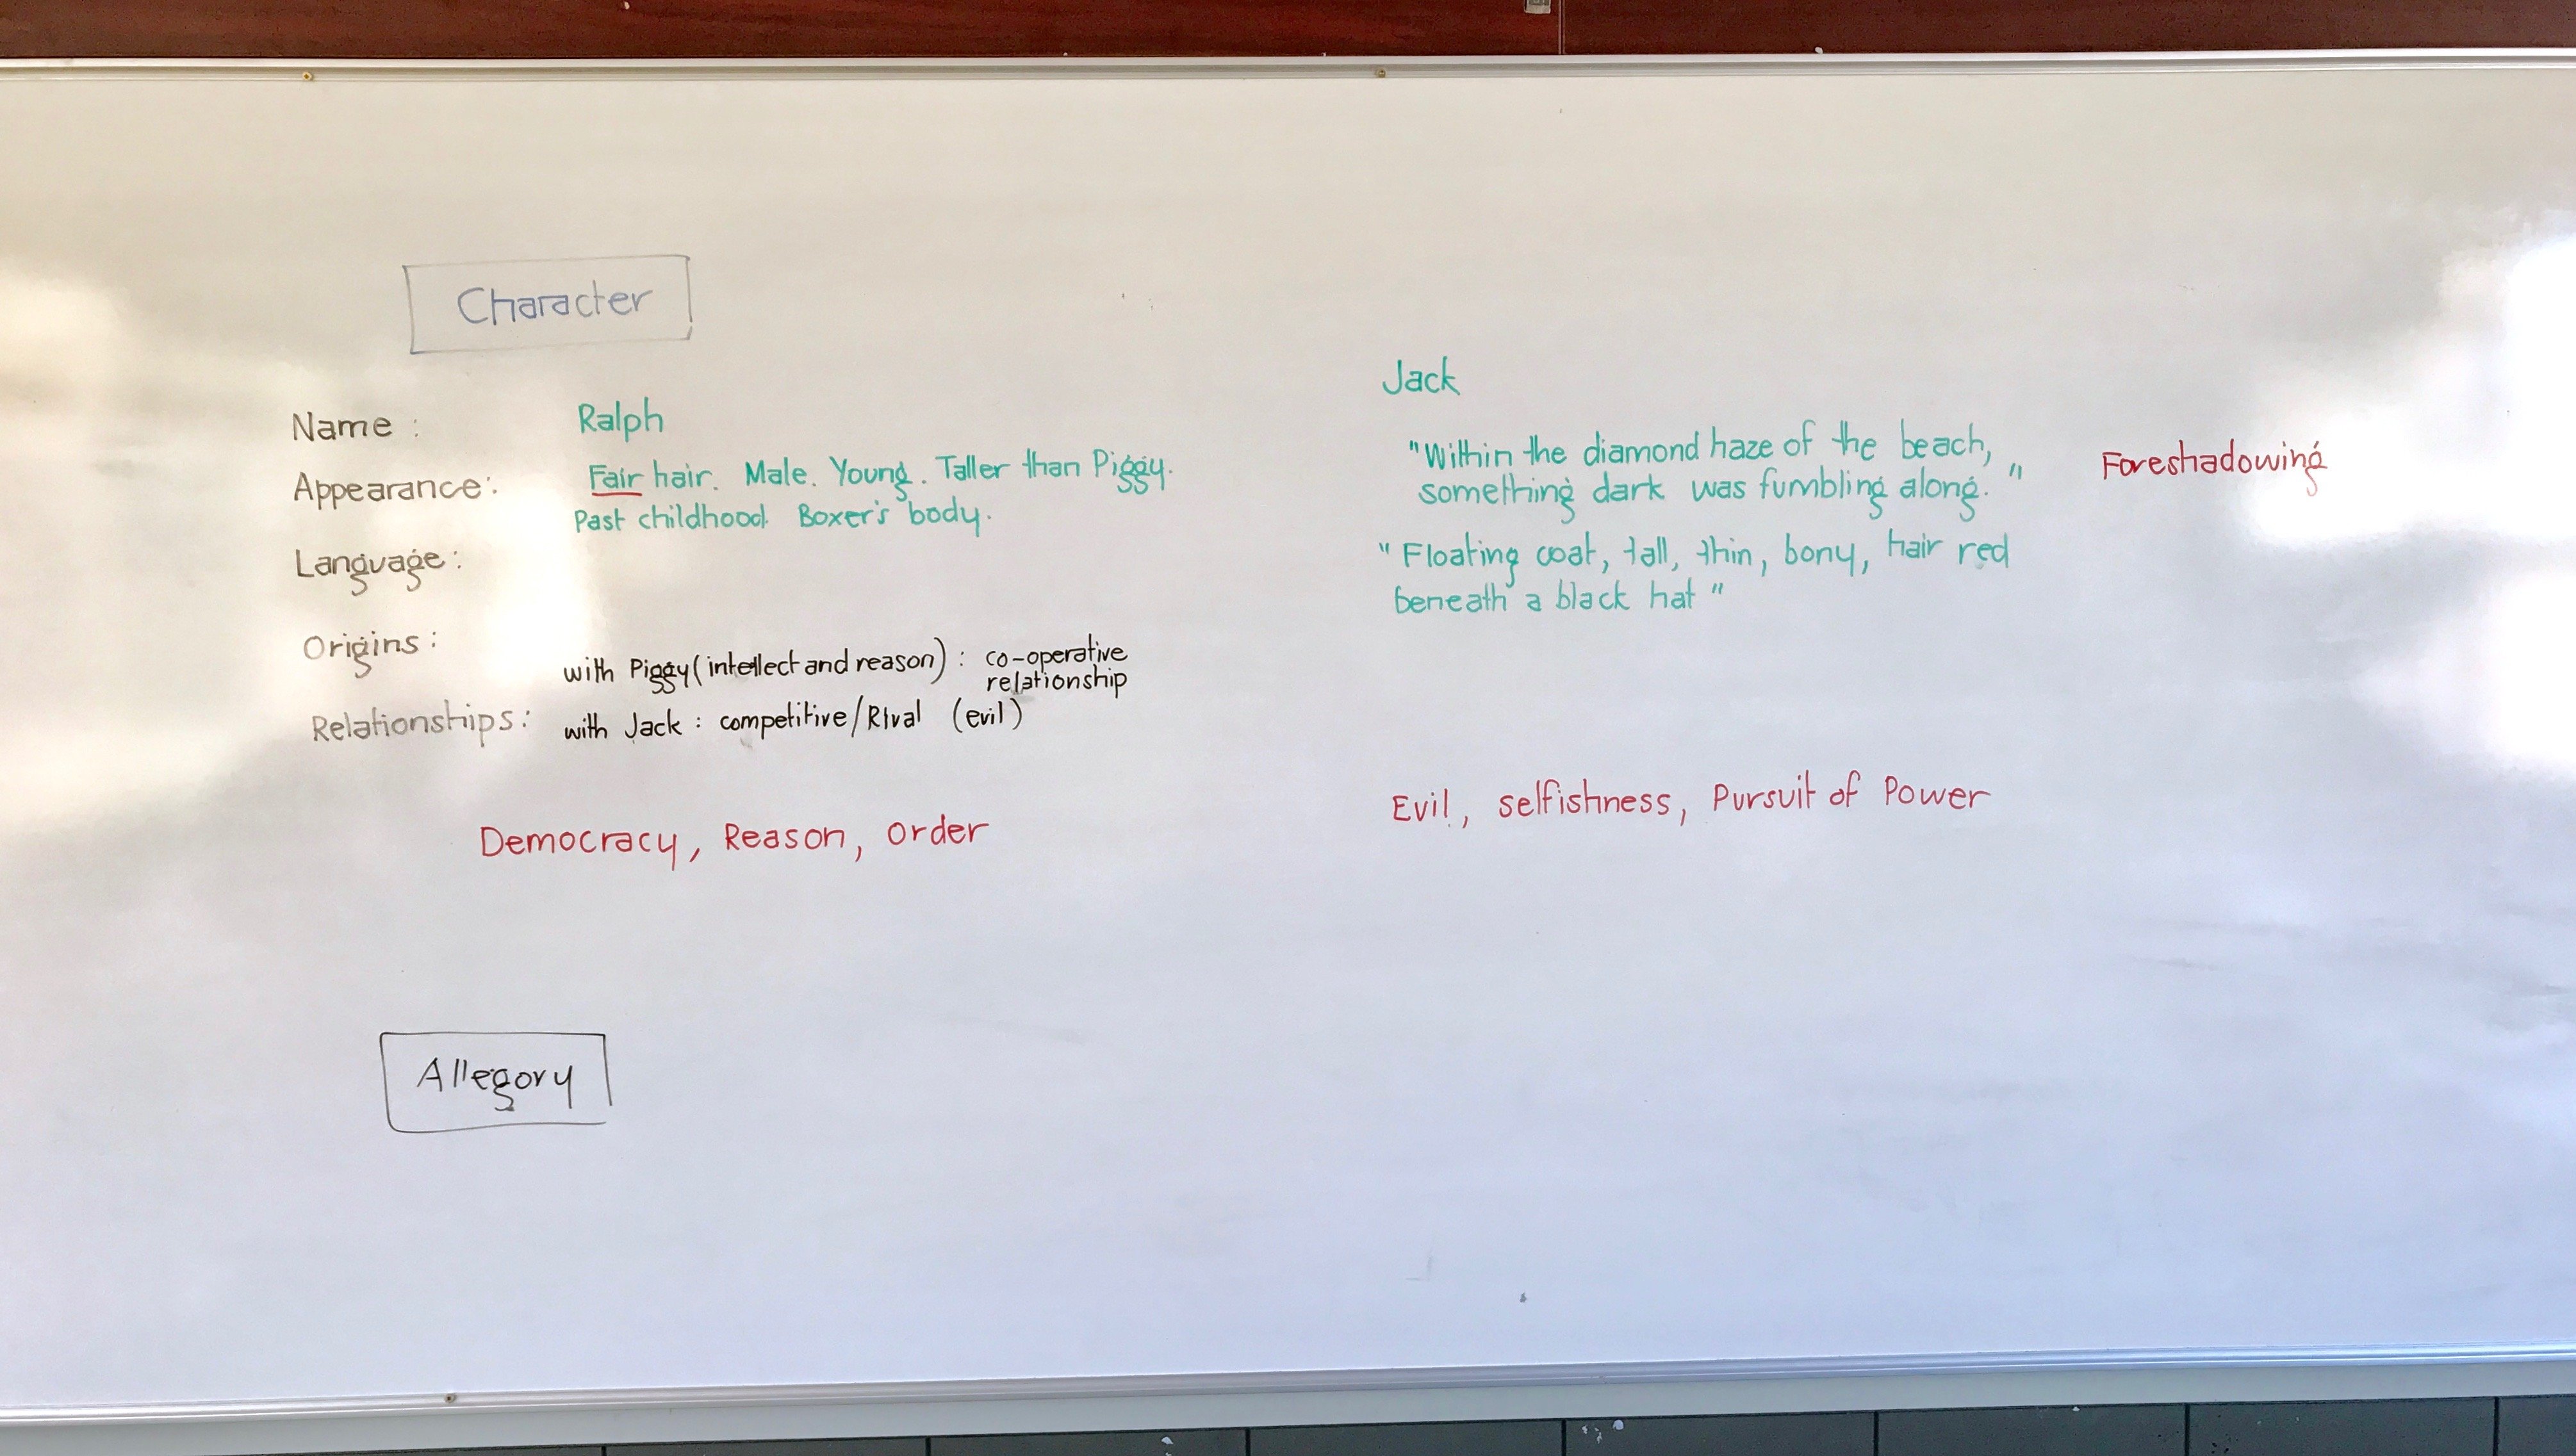 Character
Name : Ralph
Appearance: Fair hair. Male. Young. Taller than Piggy.
Past childhood. Boxer's body.
Language:
Origins:
Relationships: with Piggy (intellect and reason) : co-operative
relationship
with Jack : competitive/Rival (evil)
Democracy, Reason, order
Jack
"Within the diamond haze of the beach,
something dark was fumbling along."
Foreshadowing
"Floating coat, tall, thin, bony, hair red
beneath a black hat"
Evil, selfishness, Pursuit of Power
Allegory